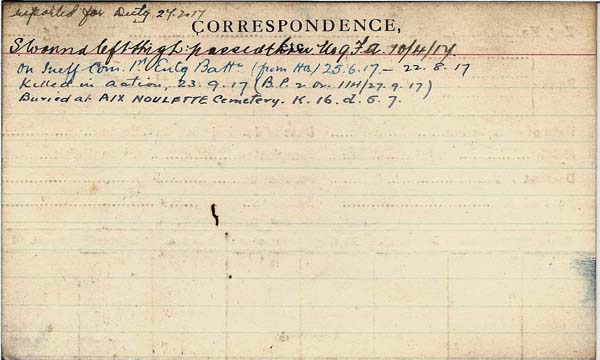 reported for Duty 27.2.17
CORRESPONDENCE,
S wound left thigh: passed thru No 9 F.A. 10/4/17
on Ineff Com. 1st Entg Battn (from HQ) 25.6.17 – 22.8.17
Killed in action, 23.9.17 (B.P. 2 Or. 114/27.9.17)
Buried at AIX NOULETTE Cemetery. K. 16. d. 5. 7.